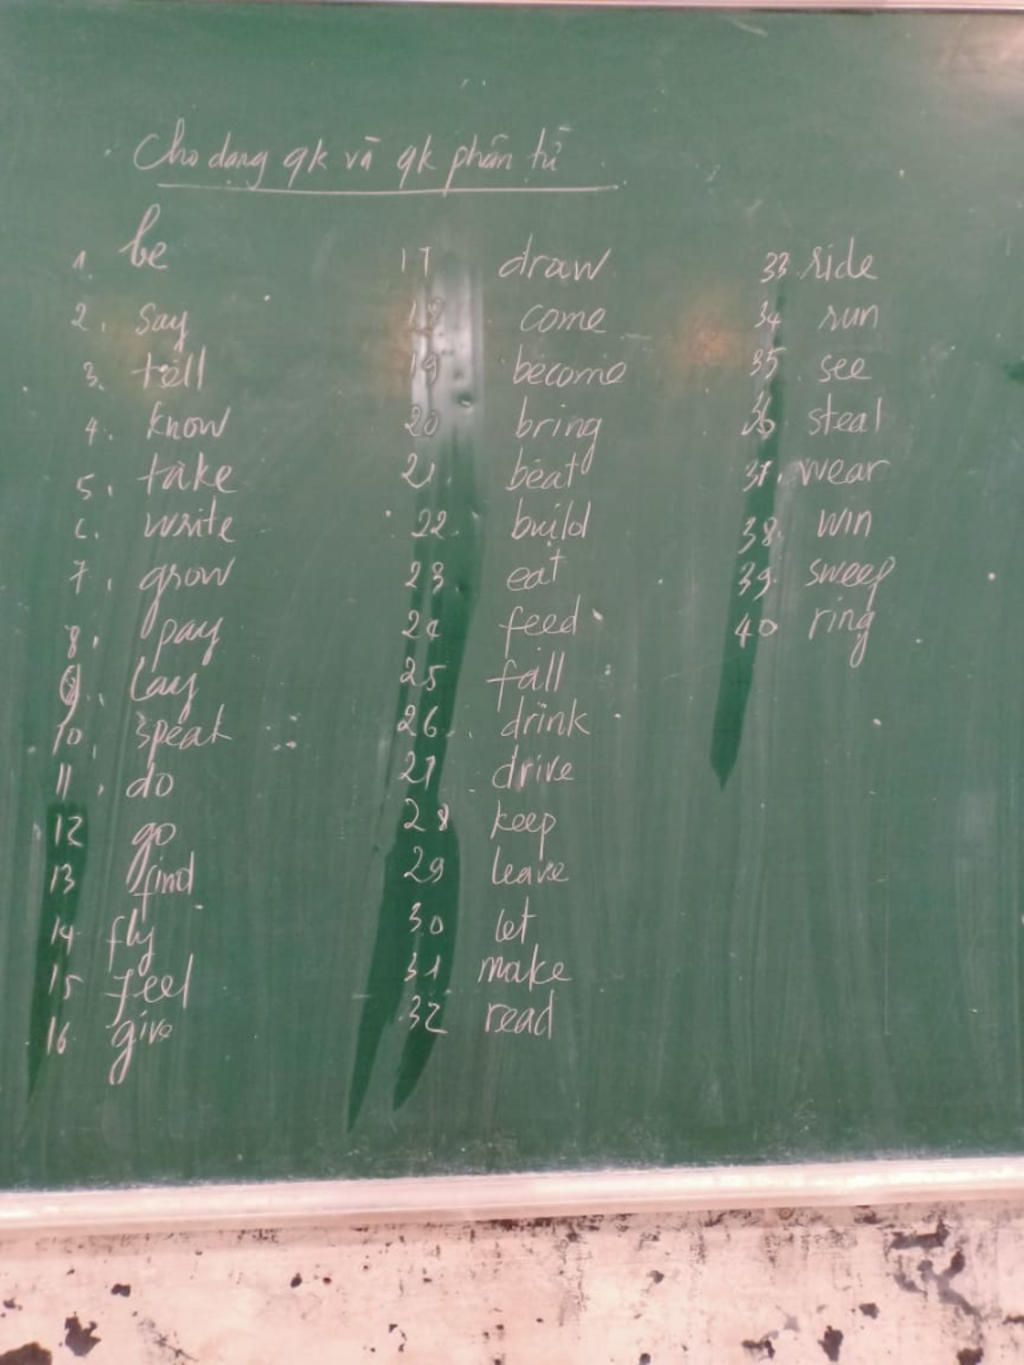 Cho dạng qk và qk phân từ
1. be
2. say
3. tell
4. know
5. take
6. write
7. grow
8. pay
9. lay
10. speak
11. do
12 go
13 find
14 fly
15 feel
16 give
17 draw
18 come
19 become
20 bring
21. beat
22. build
23 eat
24 feed
25 fall
26. drink
27 drive
28 keep
29 leave
30 let
31 make
32 read
33 ride
34 run
35 see
36 steal
37. wear
38. win
39. sweep
40 ring